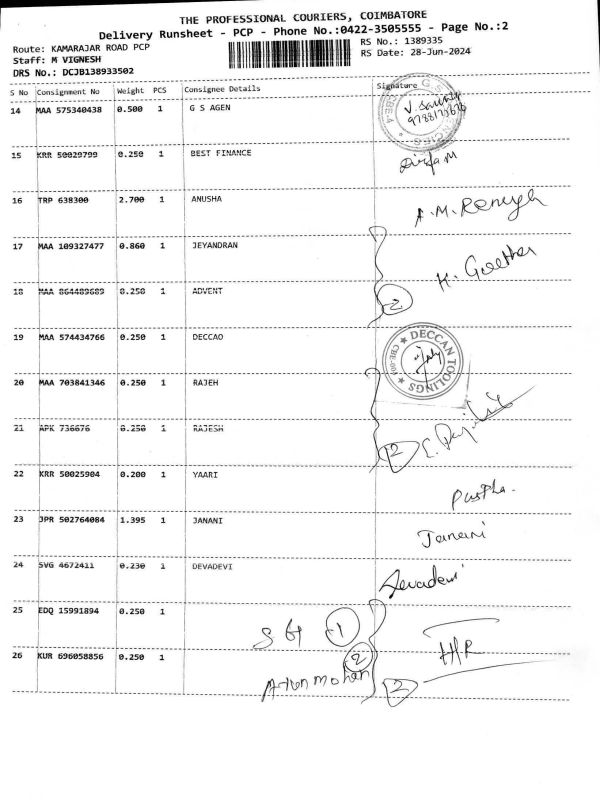 THE PROFESSIONAL COURIERS, COIMBATORE
Delivery Runsheet - PCP - Phone No.:0422-3505555 - Page No.:2
Route: KAMARAJAR ROAD PCP
RS No.: 1389335
Staff: M VIGNESH
RS Date: 28-Jun-2024
DRS No.: DCJB138933502
S No Consignment No Weight PCS Consignee Details Signature
14 MAA 575340438 0.500 1 G S AGEN
15 KRR 50029799 0.250 1 BEST FINANCE
16 TRP 638300 2.700 1 ANUSHA
A.M.
17 MAA 109327477 0.860 1 JEYANDRAN
K. Geetha
18 MAA 864489689 0.250 1 ADVENT
2
19 MAA 574434766 0.250 1 DECCAO
DECCAN TOOLINGS
20 MAA 703841346 0.250 1 RAJEH
21 APK 736676 0.250 1 RAJESH
2
22 KRR 50025904 0.200 1 YAARI
23 JPR 502764084 1.395 1 JANANI
Janani
24 SVG 4672411 0.230 1 DEVADEVI
Devadevi
25 EDQ 15991894 0.250 1
1
26 KUR 696058856 0.250 1
2
Arun mohan
2